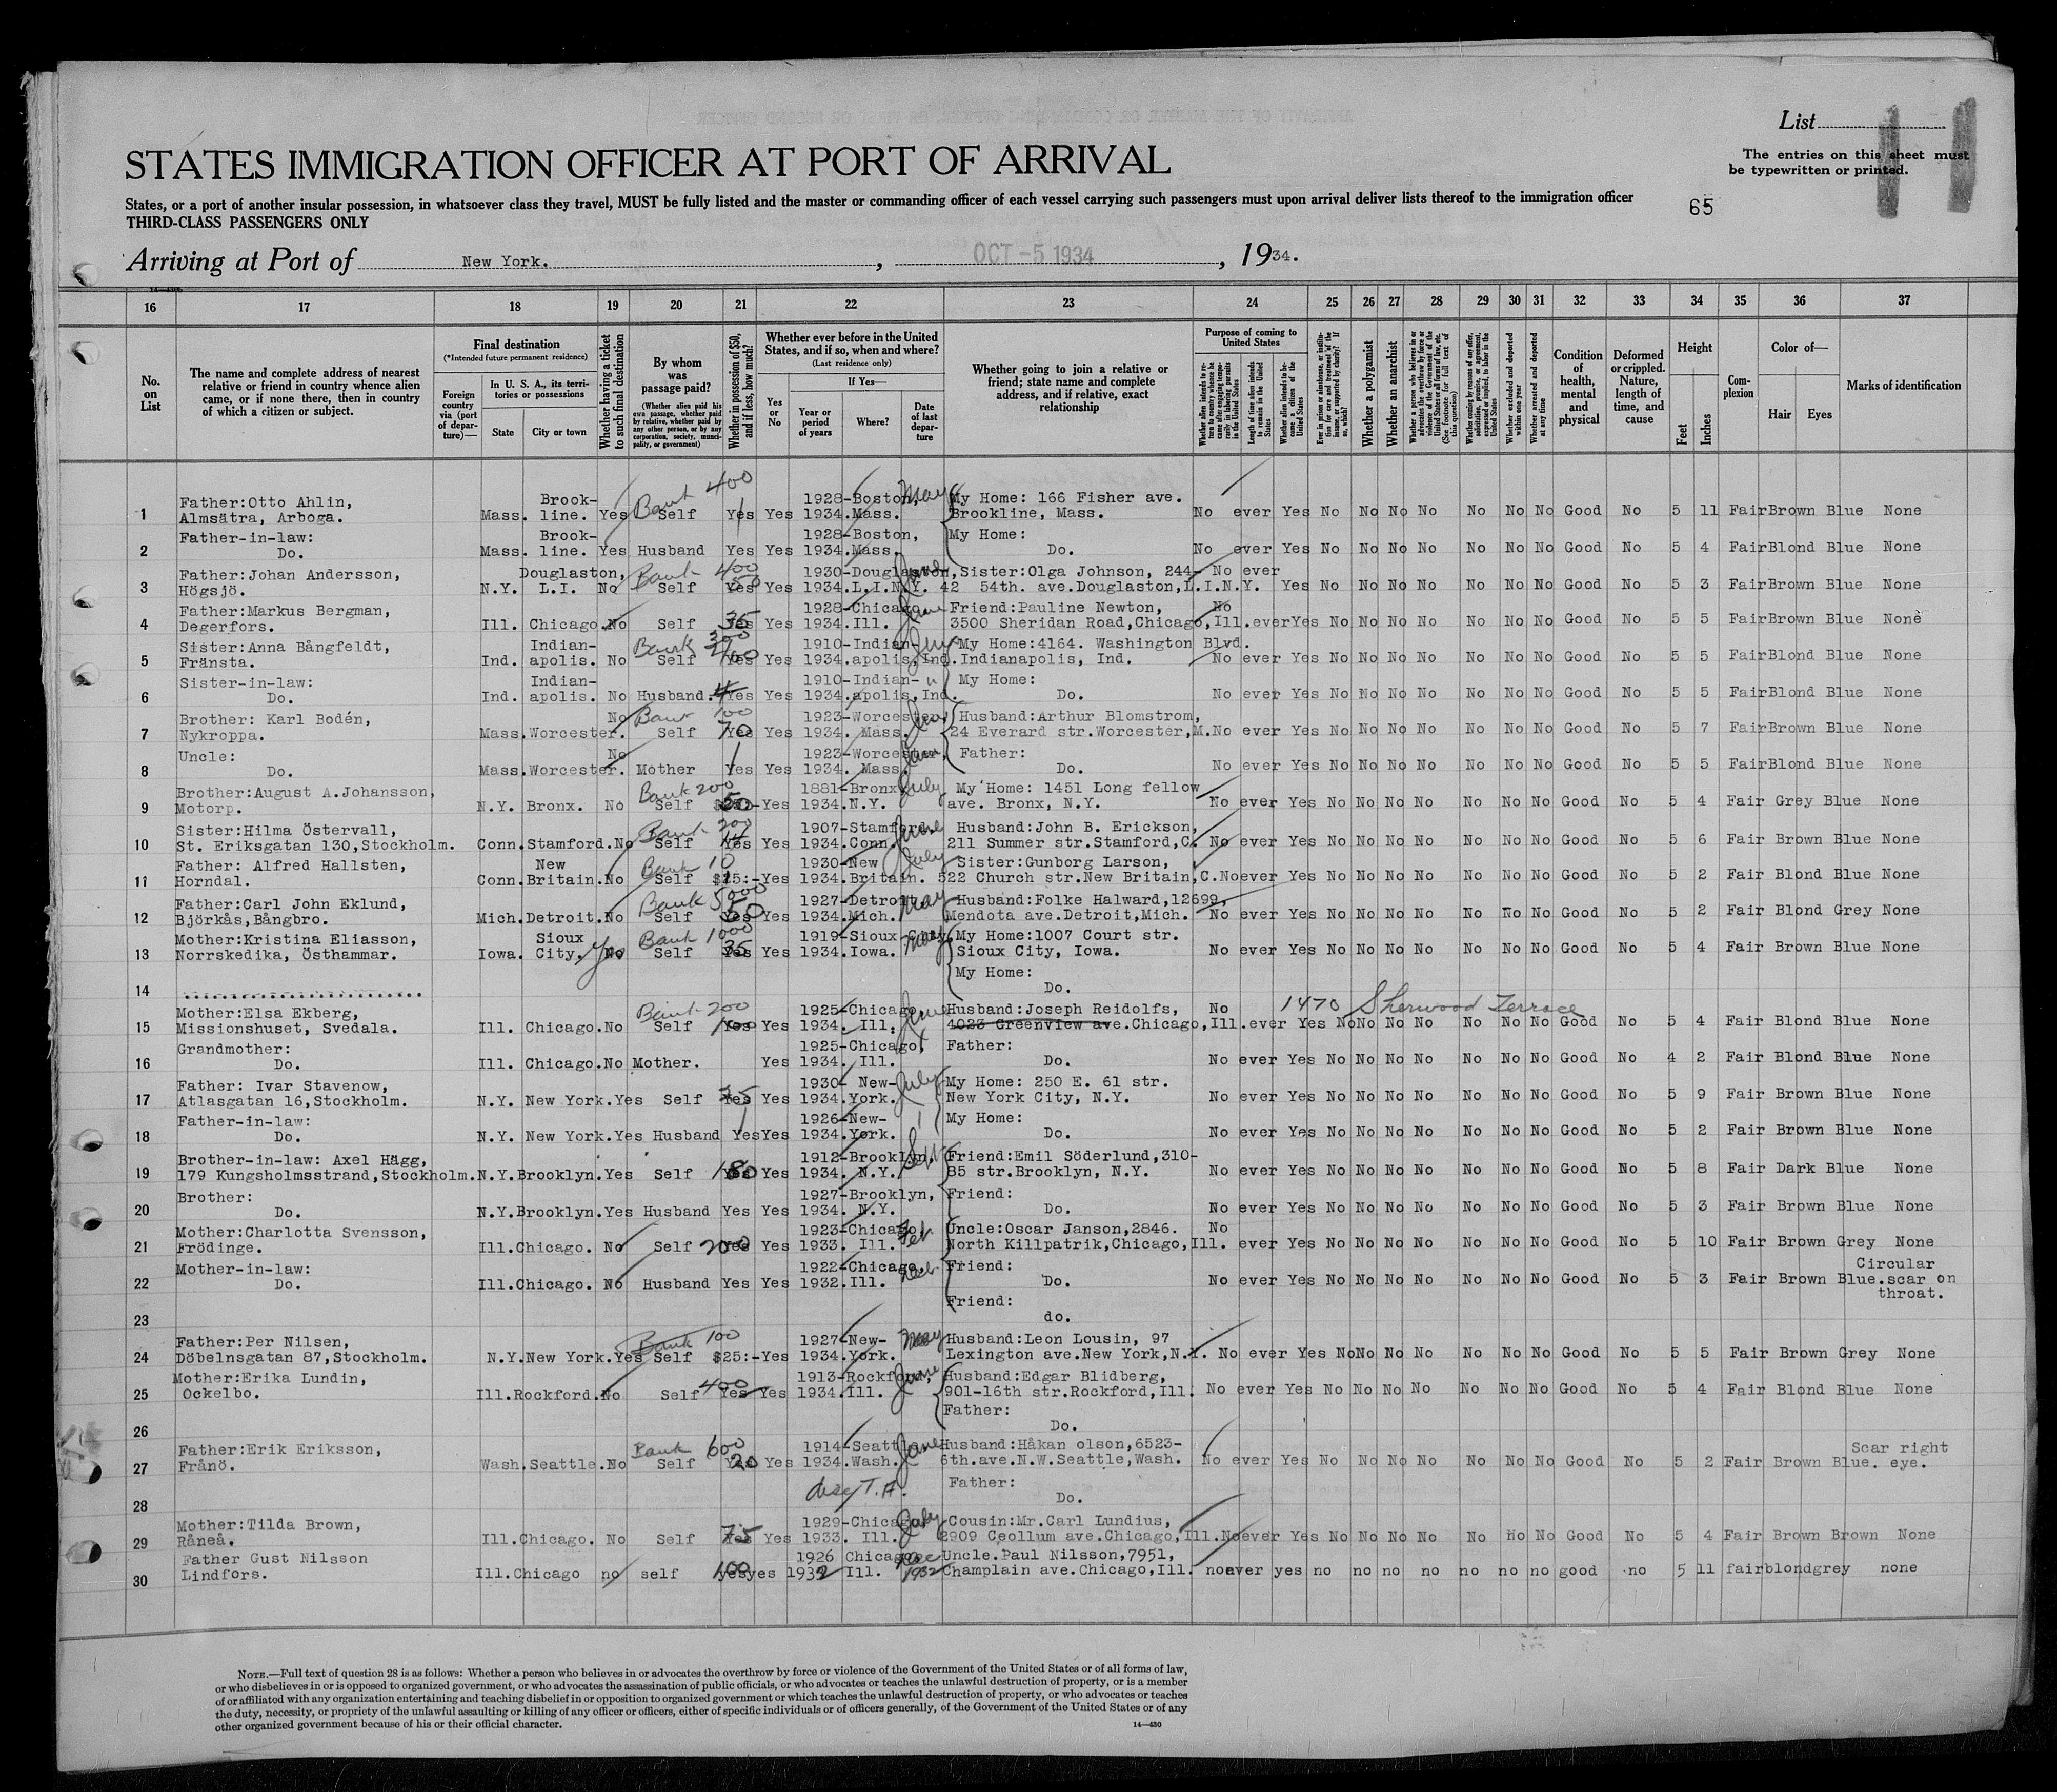 List
The entries on this sheet must
be typewritten or printed.
STATES IMMIGRATION OFFICER AT PORT OF ARRIVAL
States, or a port of another insular possession, in whatsoever class they travel, MUST be fully listed and the master or commanding officer of each vessel carrying such passengers must upon arrival deliver lists thereof to the immigration officer
65
THIRD-CLASS PASSENGERS ONLY
Arriving at Port of New York. , OCT -5 1934 , 1934.
16 17 18 19 20 21 22 23 24 25 26 27 28 29 30 31 32 33 34 35 36 37
No. on List
The name and complete address of nearest relative or friend in country whence alien came, or if none there, then in country of which a citizen or subject.
Final destination
(*Intended future permanent residence)
Foreign country via (port of departure)—
In U. S. A., its territories or possessions
State City or town
Whether having a ticket to such final destination
By whom was passage paid?
(Whether alien paid his own passage, whether paid by relative, whether paid by any other person, or by any corporation, society, municipality, or government)
Whether in possession of $50, and if less, how much?
Whether ever before in the United States, and if so, when and where?
(Last residence only)
Yes or No
If Yes—
Year or period of years Where? Date of last departure
Whether going to join a relative or friend; state name and complete address, and if relative, exact relationship
Purpose of coming to United States
Length of time alien intends to remain in the United States
Whether alien intends to become a citizen of the United States
Whether a polygamist
Whether an anarchist
Whether excluded and deported within one year
Whether arrested and deported at any time
Condition of health, mental and physical
Deformed or crippled. Nature, length of time, and cause
Height
Feet Inches
Complexion
Color of—
Hair Eyes
Marks of identification
Father:Otto Ahlin, Brook- Bank 400 1928-Boston, May My Home: 166 Fisher ave.
1 Almsätra, Arboga. Mass. line. Yes Self Yes Yes 1934.Mass. Brookline, Mass. No ever Yes No No No No No No No Good No 5 11 Fair Brown Blue None
Father-in-law: Brook- 1928-Boston, My Home:
2 Do. Mass. line. Yes Husband Yes Yes 1934.Mass. Do. No ever Yes No No No No No No No Good No 5 4 Fair Blond Blue None
Father:Johan Andersson, Douglaston, Bank 400 1930-Douglaston, June Sister:Olga Johnson, 244- No ever
3 Högsjö. N.Y. L.I. No Self Yes 50 Yes 1934.L.I.N.Y. 42 54th. ave.Douglaston,L.I.N.Y. Yes No No No No No No No Good No 5 3 Fair Brown Blue None
Father:Markus Bergman, 1928-Chicago June Friend:Pauline Newton, No
4 Degerfors. Ill. Chicago. No Self Yes 35 Yes 1934.Ill. 3500 Sheridan Road,Chicago,Ill. ever Yes No No No No No No No Good No 5 5 Fair Brown Blue None
Sister:Anna Bångfeldt, Indian- Bank 300 1910-Indian- My Home:4164. Washington Blvd.
5 Fränsta. Ind. apolis. No Self Yes Yes 1934.apolis,Ind. Indianapolis, Ind. No ever Yes No No No No No No No Good No 5 5 Fair Blond Blue None
Sister-in-law: Indian- 1910-Indian- " My Home:
6 Do. Ind. apolis. No Husband. Yes Yes 1934.apolis,Ind. Do. No ever Yes No No No No No No No Good No 5 5 Fair Blond Blue None
Brother: Karl Bodén, No Bank 100 1923-Worcester, Husband:Arthur Blomstrom,
7 Nykroppa. Mass.Worcester. Self Yes 70 Yes 1934. Mass. 24 Everard str.Worcester,M. No ever Yes No No No No No No No Good No 5 7 Fair Brown Blue None
Uncle: No 1923-Worcester, Father:
8 Do. Mass.Worcester. Mother Yes Yes 1934. Mass. Do. No ever Yes No No No No No No No Good No 5 5 Fair Blond Blue None
Brother:August A.Johansson, Bank 200 1881-Bronx July My Home: 1451 Long fellow
9 Motorp. N.Y. Bronx. No Self 50 Yes 1934.N.Y. ave. Bronx, N.Y. No ever Yes No No No No No No No Good No 5 4 Fair Grey Blue None
Sister:Hilma Östervall, Bank 200 1907-Stamford, June Husband:John B. Erickson,
10 St. Eriksgatan 130,Stockholm. Conn.Stamford.No Self Yes Yes 1934.Conn. 211 Summer str.Stamford,C. No ever Yes No No No No No No No Good No 5 6 Fair Brown Blue None
Father: Alfred Hallsten, New Bank 10 1930-New July Sister:Gunborg Larson,
11 Horndal. Conn.Britain.No Self $15:-Yes 1934.Britain. 522 Church str.New Britain,C. No ever Yes No No No No No No No Good No 5 2 Fair Blond Blue None
Father:Carl John Eklund, Bank 5000 1927-Detroit, May Husband:Folke Halward,12699,
12 Björkås,Bångbro. Mich.Detroit.No Self Yes 50 Yes 1934.Mich. Mendota ave.Detroit,Mich. No ever Yes No No No No No No No Good No 5 2 Fair Blond Grey None
Mother:Kristina Eliasson, Sioux Bank 1000 1919-Sioux City, May My Home:1007 Court str.
13 Norrskedika, Östhammar. Iowa. City. Yes No Self Yes 35 Yes 1934.Iowa. Sioux City, Iowa. No ever Yes No No No No No No No Good No 5 4 Fair Brown Blue None
My Home:
14 ........................ Do.
Mother:Elsa Ekberg, Bank 200 1925-Chicago June Husband:Joseph Reidolfs, No 1470 Sherwood Terrace
15 Missionshuset, Svedala. Ill. Chicago.No Self Yes 100 Yes 1934. Ill. 4023 Greenview ave.Chicago,Ill. ever Yes No No No No No No No Good No 5 4 Fair Blond Blue None
Grandmother: 1925-Chicago, Father:
16 Do. Ill. Chicago.No Mother. Yes 1934. Ill. Do. No ever Yes No No No No No No No Good No 4 2 Fair Blond Blue None
Father: Ivar Stavenow, 1930- New- July My Home: 250 E. 61 str.
17 Atlasgatan 16,Stockholm. N.Y. New York.Yes Self Yes Yes 1934.York. New York City, N.Y. No ever Yes No No No No No No No Good No 5 9 Fair Brown Blue None
Father-in-law: 1926-New- My Home:
18 Do. N.Y. New York.Yes Husband Yes Yes 1934.York. Do. No ever Yes No No No No No No No Good No 5 2 Fair Brown Blue None
Brother-in-law: Axel Hägg, 1912-Brooklyn, Friend:Emil Söderlund,310-
19 179 Kungsholmsstrand,Stockholm.N.Y.Brooklyn.Yes Self Yes 180 Yes 1934. N.Y. 85 str.Brooklyn, N.Y. No ever Yes No No No No No No No Good No 5 8 Fair Dark Blue None
Brother: 1927-Brooklyn, Friend:
20 Do. N.Y.Brooklyn.Yes Husband Yes Yes 1934. N.Y. Do. No ever Yes No No No No No No No Good No 5 3 Fair Brown Blue None
Mother:Charlotta Svensson, 1923-Chicago Feb Uncle:Oscar Janson,2846. No
21 Frödinge. Ill.Chicago. No Self Yes 200 Yes 1933. Ill. North Killpatrik,Chicago,Ill. ever Yes No No No No No No No Good No 5 10 Fair Brown Grey None
Mother-in-law: 1922-Chicago, Friend: Circular
22 Do. Ill.Chicago. No Husband Yes Yes 1932.Ill. Do. No ever Yes No No No No No No No Good No 5 3 Fair Brown Blue. scar on
Friend: throat.
23 do.
Father:Per Nilsen, Bank 100 1927-New- May Husband:Leon Lousin, 97
24 Döbelnsgatan 87,Stockholm. N.Y.New York.Yes Self $25:-Yes 1934.York. Lexington ave.New York,N.Y. No ever Yes No No No No No No No Good No 5 5 Fair Brown Grey None
Mother:Erika Lundin, 1913-Rockford, June Husband:Edgar Blidberg,
25 Ockelbo. Ill.Rockford.No Self 400 Yes Yes 1934.Ill. 901-16th str.Rockford,Ill. No ever Yes No No No No No No No Good No 5 4 Fair Blond Blue None
Father:
26 Do.
Father:Erik Eriksson, Bank 600 1914-Seattle June Husband:Håkan olson,6523- Scar right
27 Frånö. Wash.Seattle.No Self Yes 20 Yes 1934.Wash. 6th.ave.N.W.Seattle,Wash. No ever Yes No No No No No No No Good No 5 2 Fair Brown Blue. eye.
Father:
28 Do.
Mother:Tilda Brown, 1929-Chicago July Cousin:Mr.Carl Lundius,
29 Råneå. Ill.Chicago. No Self Yes 75 Yes 1933. Ill. 2909 Ceollum ave.Chicago,Ill. No ever Yes No No No No No no No Good No 5 4 Fair Brown Brown None
Father Gust Nilsson 1926 Chicago Dec Uncle.Paul Nilsson,7951,
30 Lindfors. Ill.Chicago no self yes 100 yes 1932 Ill. 1932 Champlain ave.Chicago,Ill. no ever yes no no no no no no no good no 5 11 fair blond grey none
NOTE.—Full text of question 28 is as follows: Whether a person who believes in or advocates the overthrow by force or violence of the Government of the United States or of all forms of law,
or who disbelieves in or is opposed to organized government, or who advocates the assassination of public officials, or who advocates or teaches the unlawful destruction of property, or is a member
of or affiliated with any organization entertaining and teaching disbelief in or opposition to organized government or which teaches the unlawful destruction of property, or who advocates or teaches
the duty, necessity, or propriety of the unlawful assaulting or killing of any officer or officers, either of specific individuals or of officers generally, of the Government of the United States or of any
other organized government because of his or their official character.
14—430